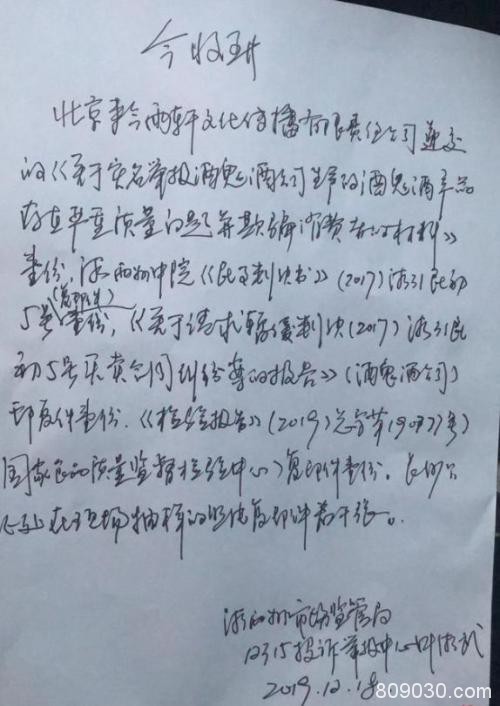 今收到
北京来今雨轩文化传播有限责任公司递交
的《关于实名举报酒鬼酒公司生产的酒鬼酒产品
存在严重质量问题并欺骗消费者的材料》
壹份,湘西州中院《民事判决书》(2017)湘31民初
(复印件)
5号壹份,《关于请求暂缓判决(2017)湘31民
初5号买卖合同纠纷案的报告》(酒鬼酒公司)
印复件壹份.《检验报告》(2019)
国家食品质量监督检验中心)复印件壹份.
在现场抽样的照片复印件若干张。
湘西州市场监管局
12315投诉举报中心
2019.12.18
809030.com